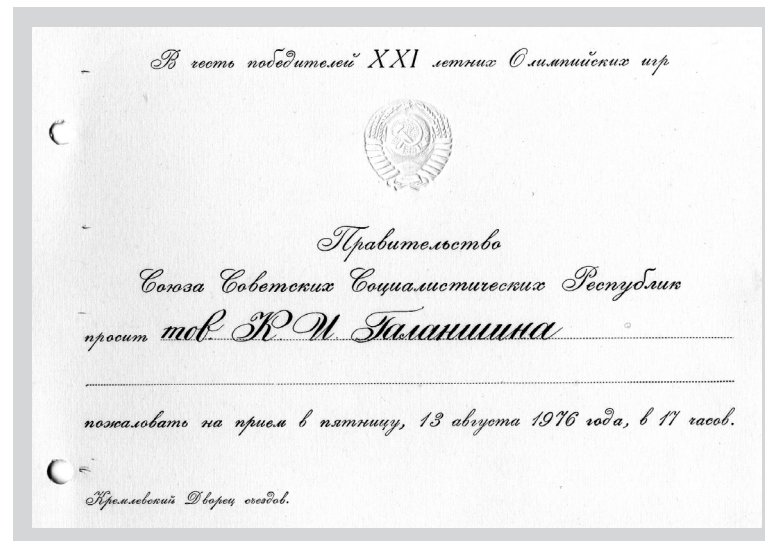 В честь победителей XXI летних Олимпийских игр
Правительство
Союза Советских Социалистических Республик
просит тов. К. И. Галаншина
пожаловать на прием в пятницу, 13 августа 1976 года, в 17 часов.
Кремлевский Дворец съездов.